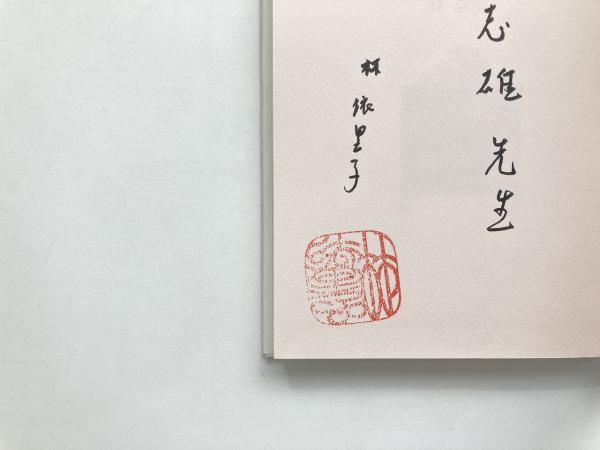 志雄先生
林依里子